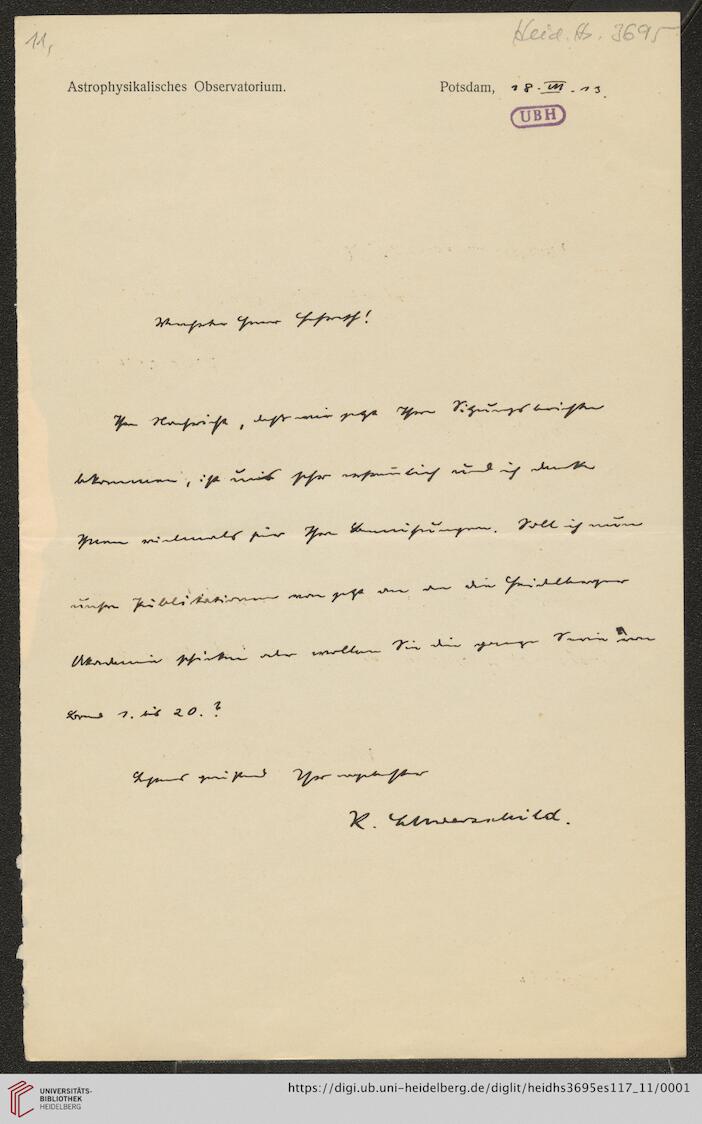 11,
Heid. Hs. 3695
Astrophysikalisches Observatorium.
Potsdam, 18. III. 13.
UBH
Verehrter Herr Geheimrath!
Ihre Nachricht, daß wir jetzt Ihre Sitzungsberichte
bekommen, ist uns sehr erfreulich und ich danke
Ihnen vielmals für Ihre Bemühungen. Soll ich nun
unsre Publikationen von jetzt an an die Heidelberger
Akademie schicken oder wollen Sie die ganze Serie von
Band 1. bis 20.?
Bestens grüßend Ihr ergebenster
K. Schwarzschild.
UNIVERSITÄTS-
BIBLIOTHEK
HEIDELBERG
https://digi.ub.uni-heidelberg.de/diglit/heidhs3695es117_11/0001